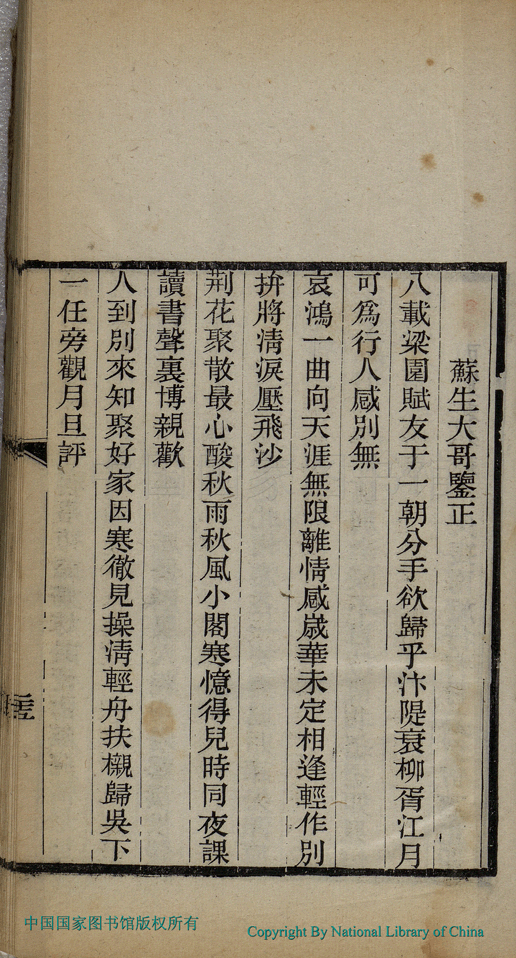 蘇生大哥鑒正
八載梁園賦友于一朝分手欲歸乎汴隄衰柳胥江月
可為行人感別無
哀鴻一曲向天涯無限離情感歲華未定相逢輕作別
拚將清淚壓飛沙
荆花聚散最心酸秋雨秋風小閣寒憶得兒時同夜課
讀書聲裏博親歡
人到別來知聚好家因寒徹見操清輕舟扶櫬歸吳下
一任旁觀月旦評
中国国家图书馆版权所有
Copyright By National Library of China